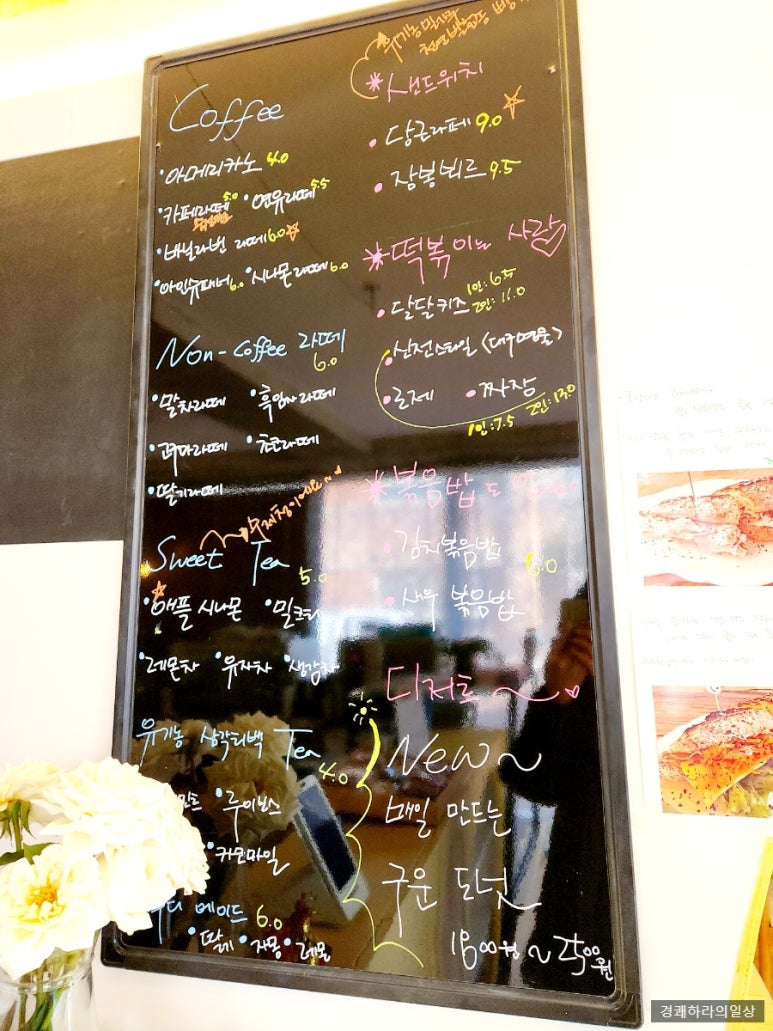 Coffee
아메리카노 4.0
카페라떼 5.0 연유라떼 5.5
바닐라빈 라떼 6.0
아인슈페너 6.0 시나몬라떼 6.0
Non-Coffee 라떼
6.0
말차라떼 흑임자라떼
고구마라떼 초코라떼
딸기라떼
수제청이에요~
Sweet Tea
5.0
애플시나몬 밀크티
레몬차 유자차 생강차
유기농 삼각티백 Tea
4.0
루이보스
카모마일
메이드 6.0
딸기 자몽 레몬
유기농밀가루
천연발효종
샌드위치
당근라페 9.0
잠봉뵈르 9.5
떡볶이는 사랑
달달키즈 1인:6.5
2인:11.0
신전스타일 <대구명물>
로제 짜장
1인:7.5 2인:13.0
볶음밥도
김치볶음밥
6.0
새우 볶음밥
디저트~
New~
매일 만드는
구운 도넛
1800원~2500원
경쾌하라의일상